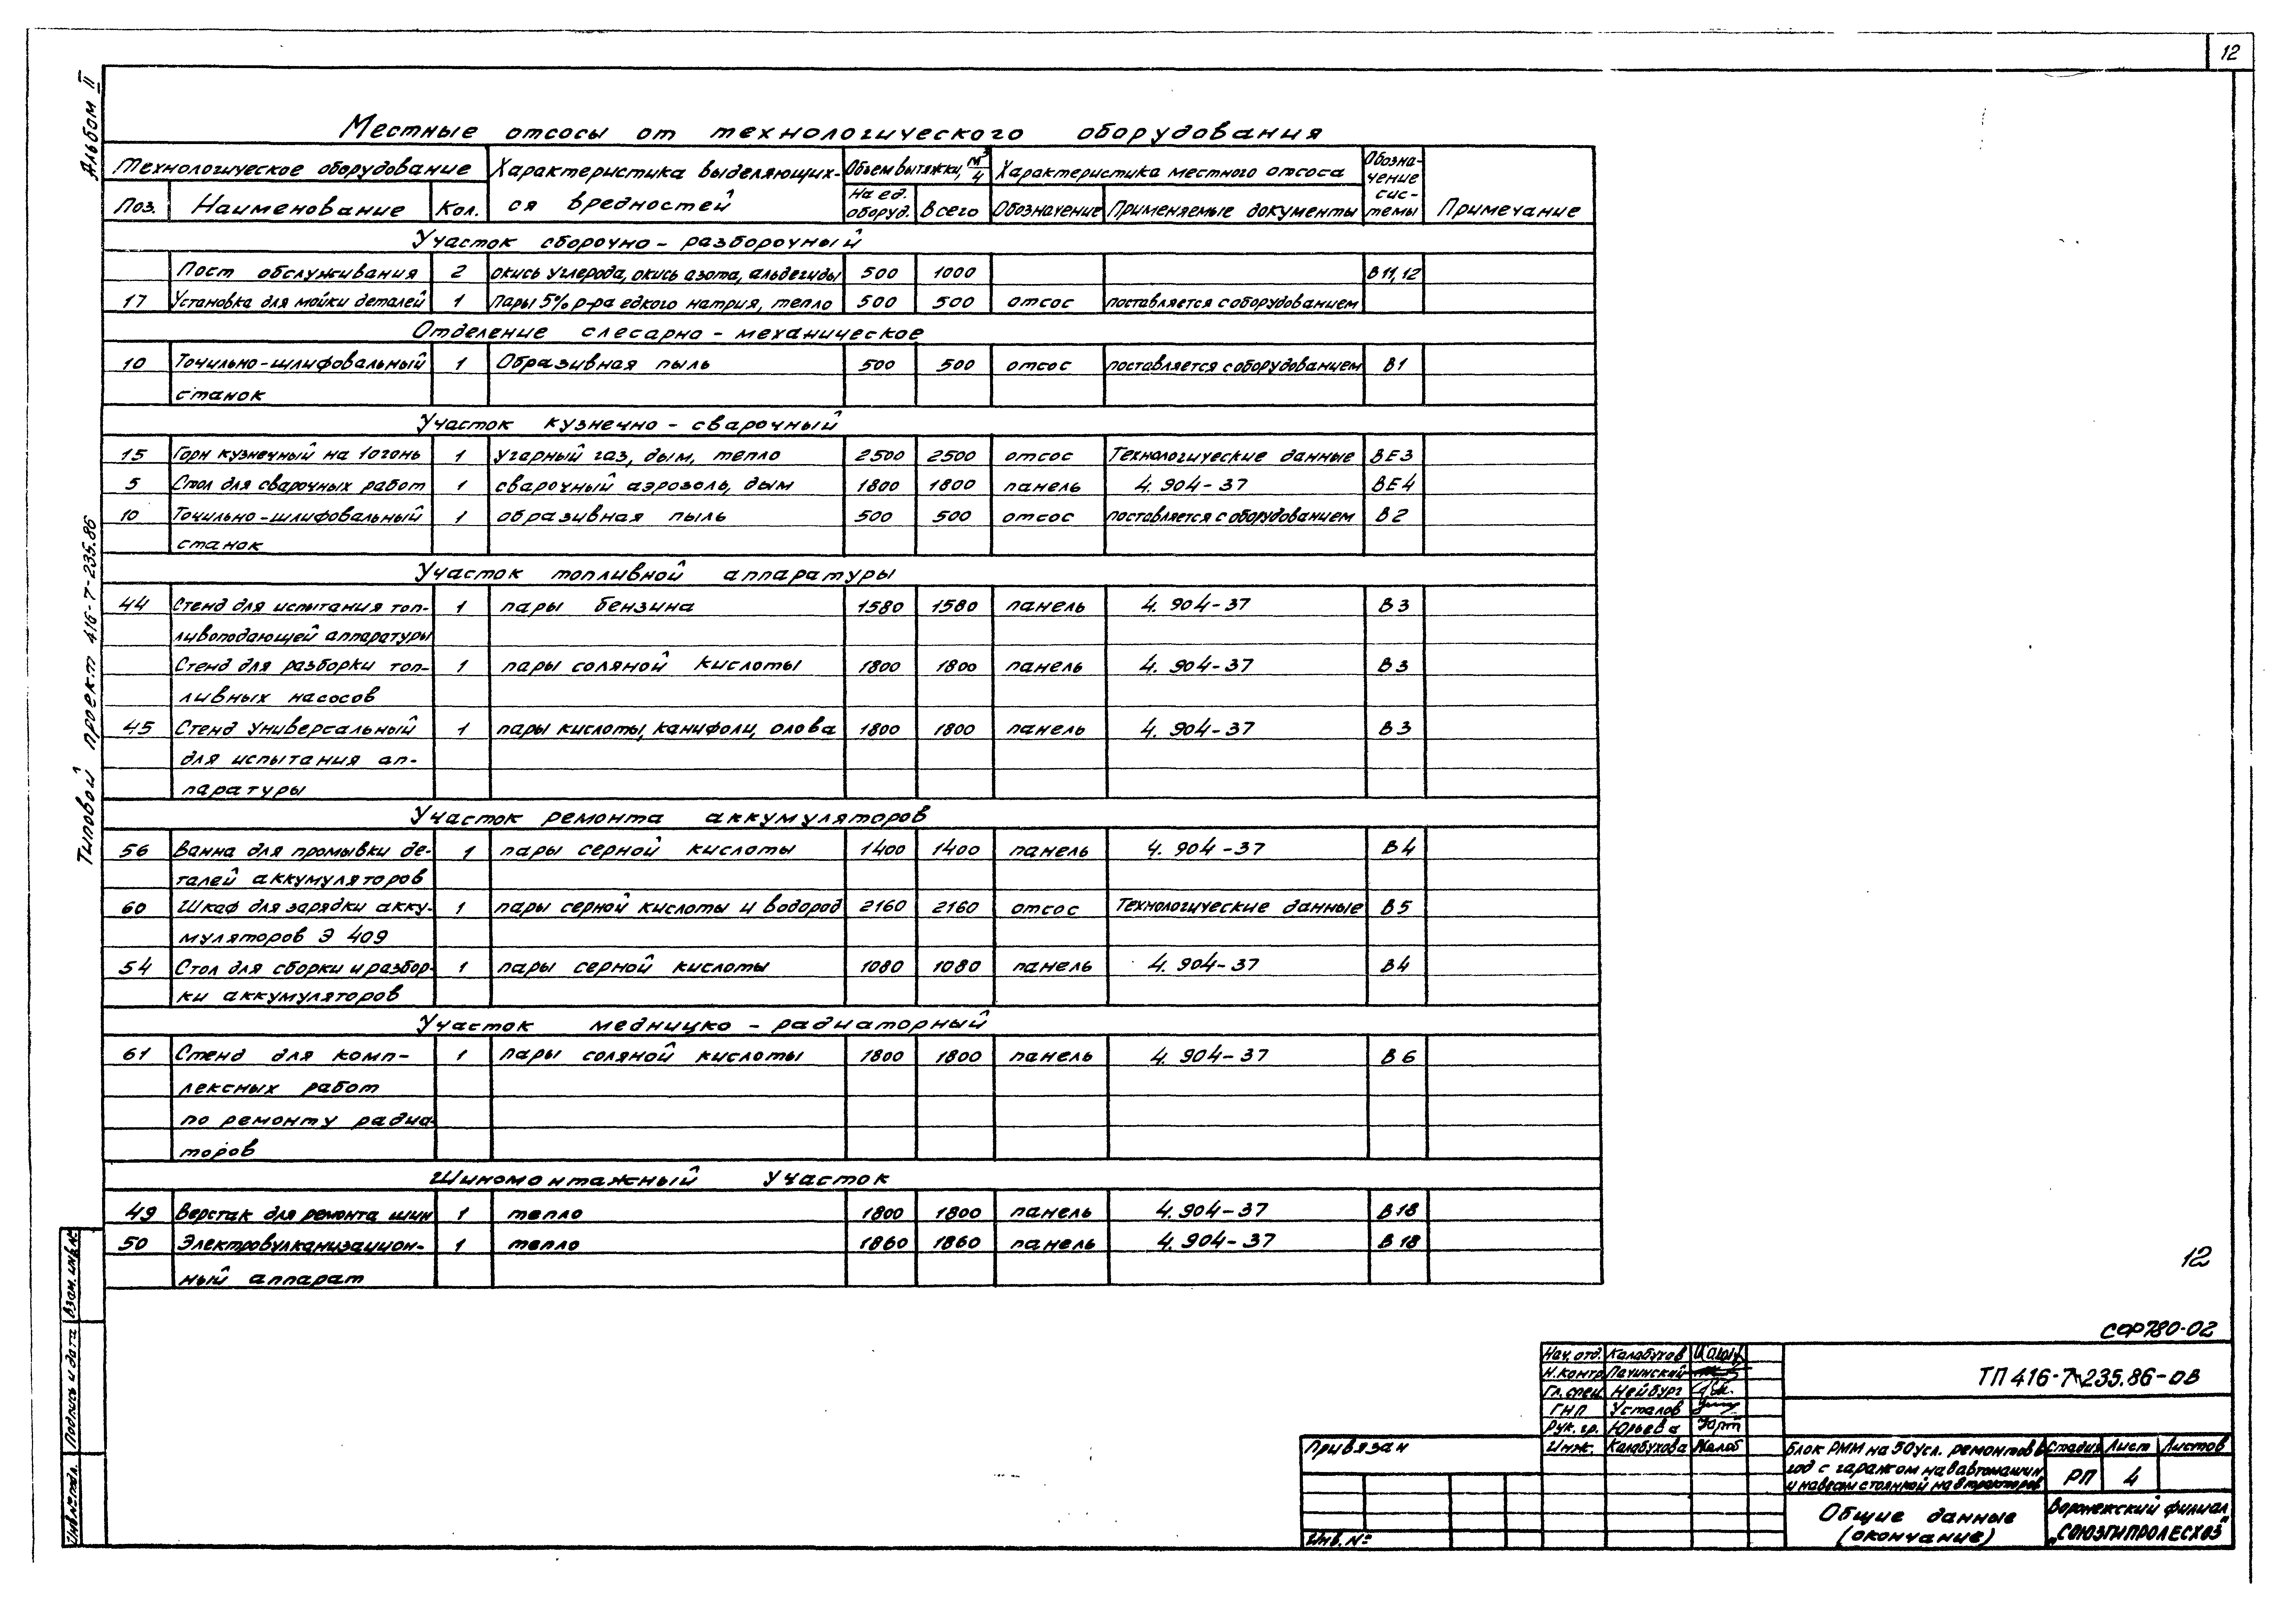 12
Альбом II
Типовой проект 416-7-235.86
Местные отсосы от технологического оборудования
Технологическое оборудование Характеристика выделяющих- Объем вытяжки, м³/ч Характеристика местного отсоса Обозна-
чение
Поз. Наименование Кол. ся вредностей На ед. оборуд. всего Обозначение Применяемые документы сис-
темы Примечание
Участок сборочно-разборочный
Пост обслуживания 2 окись углерода, окись азота, альдегиды 500 1000 В11,12
17 Установка для мойки деталей 1 Пары 5% р-ра едкого натрия, тепло 500 500 отсос поставляется с оборудованием
Отделение слесарно-механическое
10 Точильно-шлифовальный 1 Образивная пыль 500 500 отсос поставляется с оборудованием В1
станок
Участок кузнечно-сварочный
15 Горн кузнечный на 1 огонь 1 Угарный газ, дым, тепло 2500 2500 отсос Технологические данные ВЕ3
5 Стол для сварочных работ 1 сварочный аэрозоль, дым 1800 1800 панель 4.904-37 ВЕ4
10 Точильно-шлифовальный 1 образивная пыль 500 500 отсос поставляется с оборудованием В2
станок
Участок топливной аппаратуры
44 Стенд для испытания топ- 1 пары бензина 1580 1580 панель 4.904-37 В3
ливоподающей аппаратуры
Стенд для разборки топ- 1 пары соляной кислоты 1800 1800 панель 4.904-37 В3
ливных насосов
45 Стенд универсальный 1 пары кислоты, канифоли, олова 1800 1800 панель 4.904-37 В3
для испытания ап-
паратуры
Участок ремонта аккумуляторов
56 Ванна для промывки де- 1 пары серной кислоты 1400 1400 панель 4.904-37 В4
талей аккумуляторов
60 Шкаф для зарядки акку- 1 пары серной кислоты и водород 2160 2160 отсос Технологические данные В5
муляторов Э 409
54 Стол для сборки и разбор- 1 пары серной кислоты 1080 1080 панель 4.904-37 В4
ки аккумуляторов
Участок медницко-радиаторный
61 Стенд для комп- 1 пары соляной кислоты 1800 1800 панель 4.904-37 В6
лексных работ
по ремонту радиа-
торов
Шиномонтажный участок
49 Верстак для ремонта шин 1 тепло 1800 1800 панель 4.904-37 В18
50 Электровулканизацион- 1 тепло 1860 1860 панель 4.904-37 В18
ный аппарат
12
СФ780-02
Взам. инв. №
Подпись и дата
Инв. № подл.
Нач. отд. Калабухов
Н. контр. Пачинский
Гл. спец. Нейбург
ГИП Усталов
Рук. гр. Юрьева
Инж. Калабухова
ТП 416-7-235.86-ОВ
Привязан
Инв. №
Блок РММ на 50 усл. ремонтов в
год с гаражом на 8 автомашин
и навесом стоянкой на 8 тракторов
Стадия Лист Листов
РП 4
Общие данные
(окончание)
Воронежский филиал
„СОЮЗГИПРОЛЕСХОЗ"